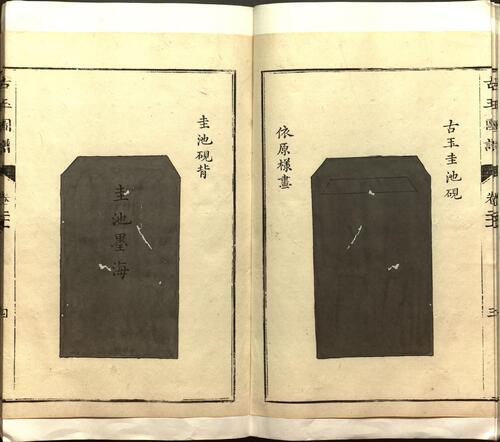 古玉圭池硯
依原樣畫
古玉圖譜
卷
三
圭池硯背
圭池墨海
古玉圖譜
卷
四